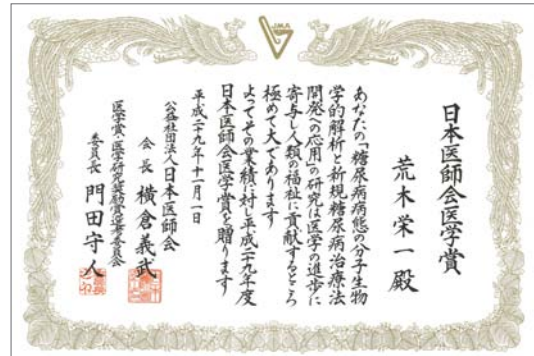 JMA
日本医師会医学賞
荒木栄一殿
あなたの「糖尿病病態の分子生物
学的解析と新規糖尿病治療法
開発への応用」の研究は医学の進歩に
寄与し人類の福祉に貢献するところ
極めて大であります
よってその業績に対し平成二十九年度
日本医師会医学賞を贈ります
平成二十九年十一月一日
公益社団法人日本医師会
会長 横倉義武
医学賞・医学研究奨励賞選考委員会
委員長 門田守人